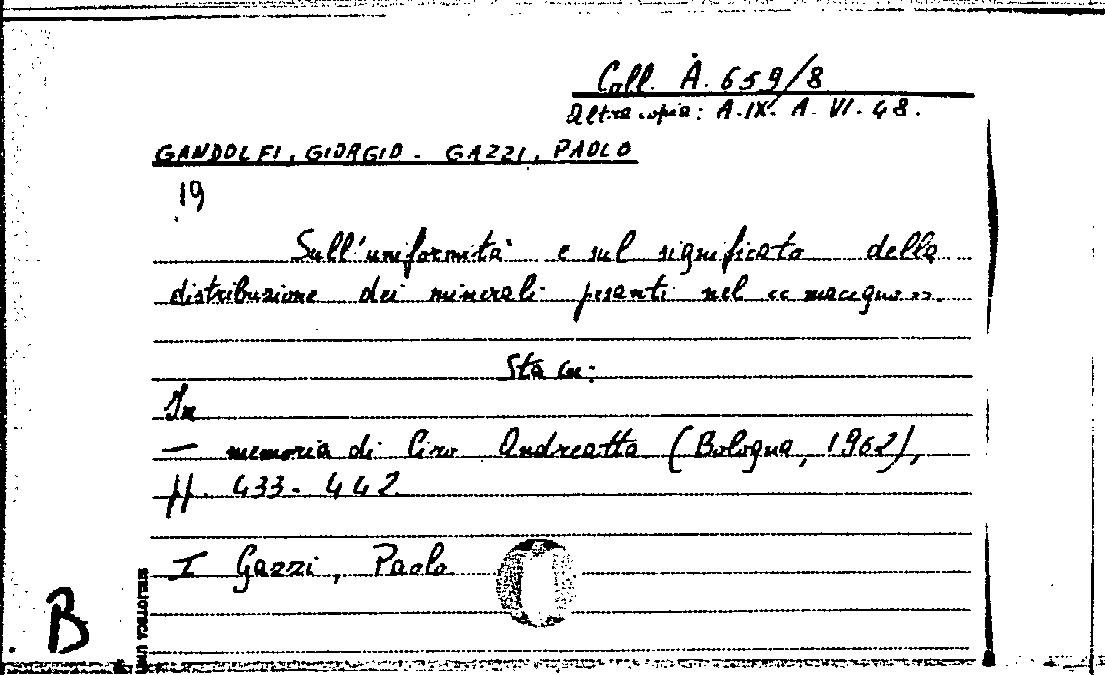 Coll. A. 659/8
Altra copia: A.IX. A. VI. 48.
GANDOLFI, GIORGIO - GAZZI, PAOLO
19
Sull'uniformità e sul significato della
distribuzione dei minerali pesanti nel «macigno».
Sta in:
In
— memoria di Ciro Andreatta (Bologna, 1962),
pp. 433-442
I Gazzi, Paolo
B
BIBLIOTECA